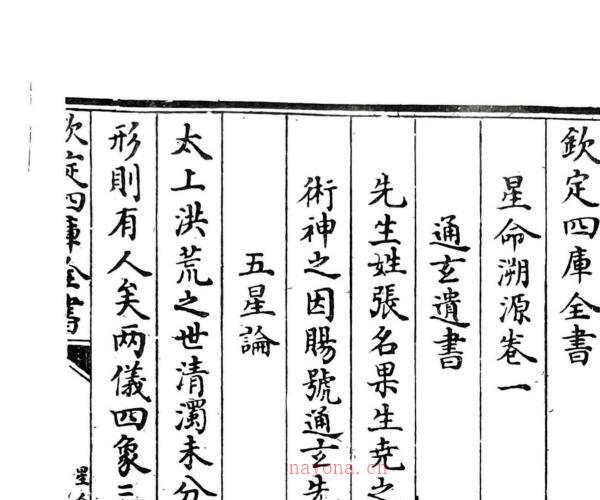 欽定四庫全書
星命溯源卷一
通玄遺書
先生姓張名果生堯之
術神之因賜號通玄先
五星論
太上洪荒之世清濁未分
形則有人矣两儀四象三
欽定四庫全書
星命
nayona.cn